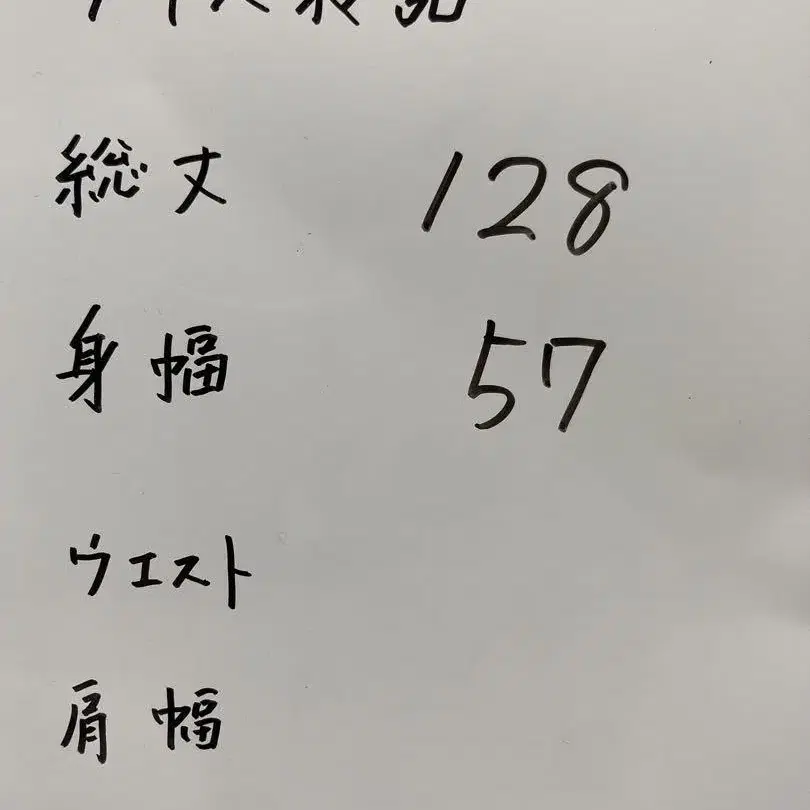 総丈 128
身幅 57
ウエスト
肩幅